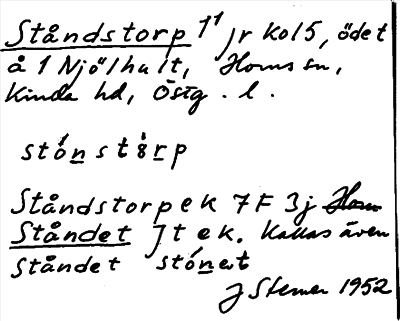 Ståndstorp 1¹ jr kol 5, ödet
å 1 Njölhult, Horns sn,
Kinda hd, Östg. l.
stón stèrp
Ståndstorp ek 7F 3j Horn
Ståndet Jt ek. Kallas även
Ståndet stónet
J Stemer 1952